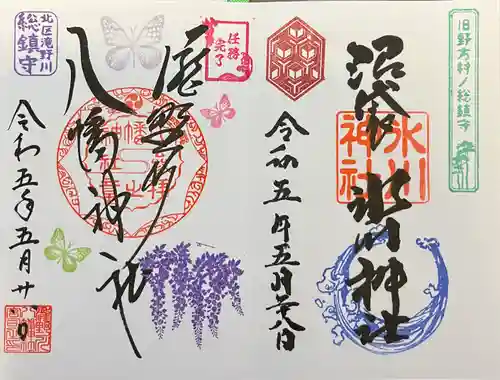 旧野方村ノ総鎮守
沼袋 氷川神社
氷川
神社
令和五年五月廿八日
任務
完了
瀧野川
八幡神社
北区滝野川
総鎮守
令和五年五月廿八日